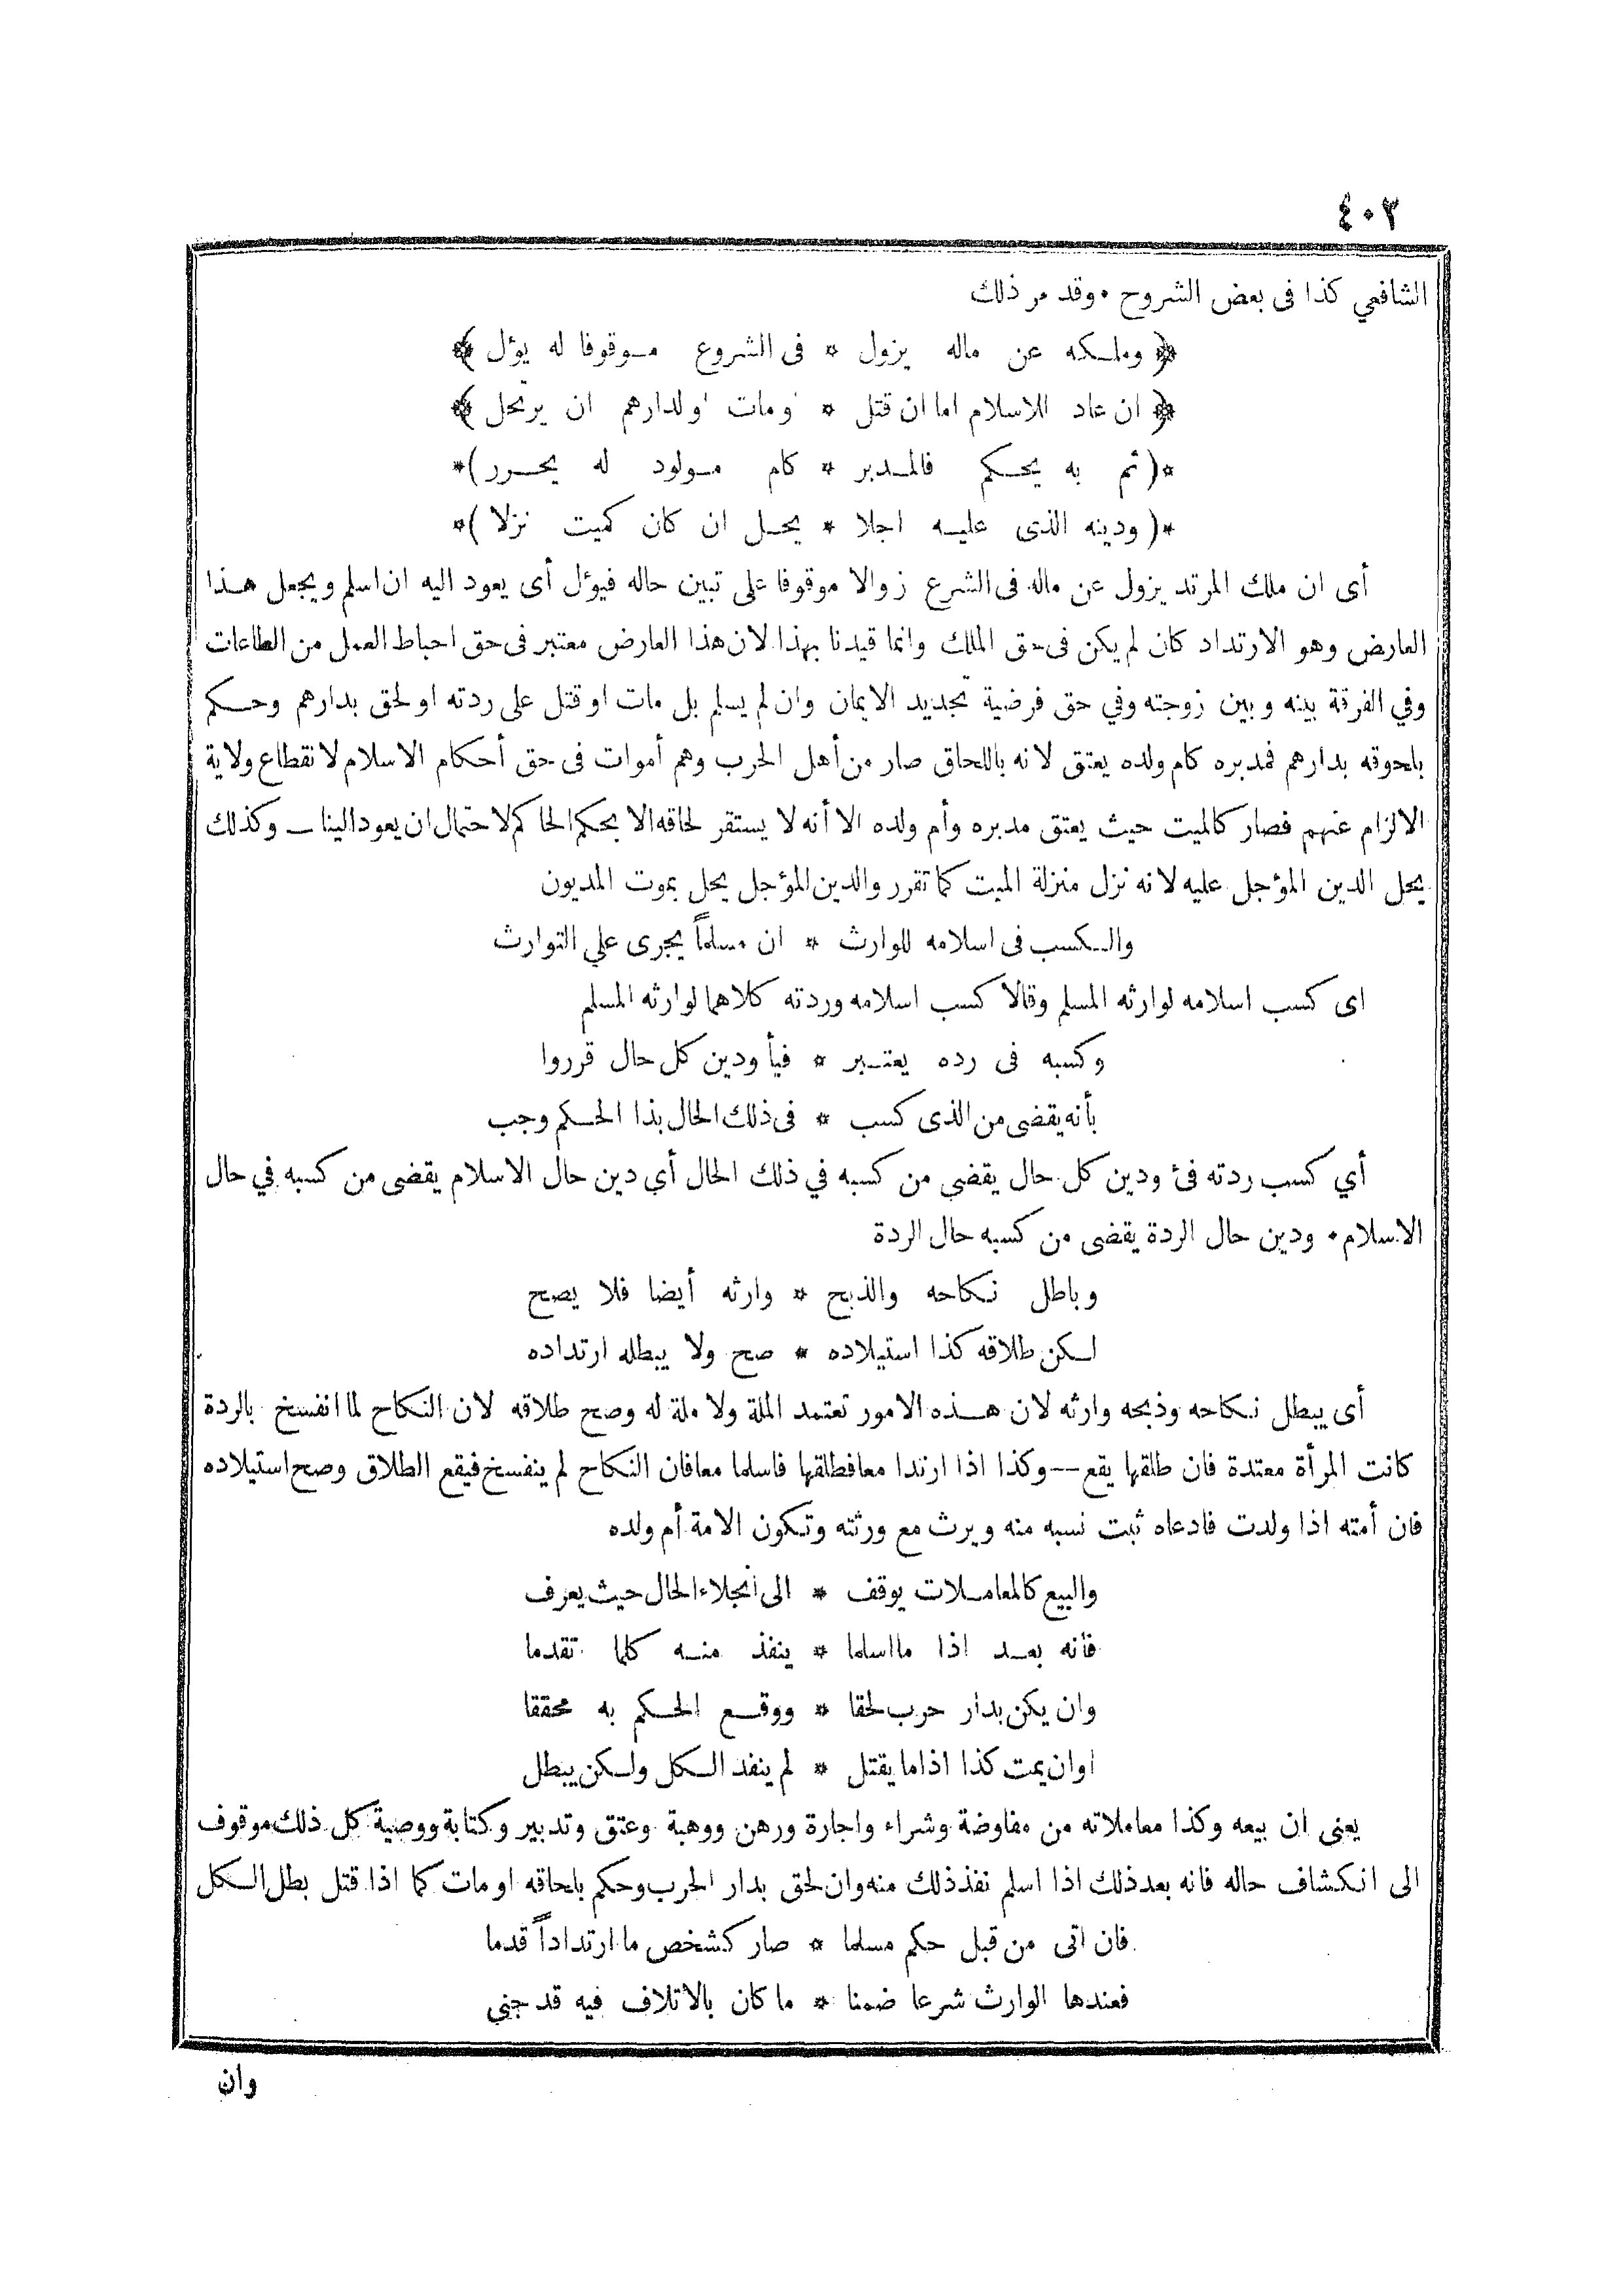 ٤٠٣
الشافعي كذا فى بعض الشروح ٠ وقد مر ذلك
﴿ وملكه عن ماله يزول * فى الشروع موقوفا له يؤل ﴾
﴿ ان عاد للاسلام اما ان قتل * ومات اولدارهم ان يرتحل ﴾
*( ثم به يحكم فالمدبر * كام مولود له يحرر )*
*( ودينه الذى عليه اجلا * يحل ان كان كميت نزلا )*
أى ان ملك المرتد يزول عن ماله فى الشرع زوالا موقوفا على تبين حاله فيؤل أى يعود اليه ان اسلم ويجعل هذا
العارض وهو الارتداد كان لم يكن فى حق الملك وانما قيدنا بهذا لان هذا العارض معتبر فى حق احباط العمل من الطاعات
وفي الفرقة بينه وبين زوجته وفي حق فرضية تجديد الايمان وان لم يسلم بل مات او قتل على ردته او لحق بدارهم وحكم
بلحوقه بدارهم فمدبره كام ولده يعتق لانه باللحاق صار من أهل الحرب وهم أموات فى حق أحكام الاسلام لانقطاع ولاية
الالزام عنهم فصار كالميت حيث يعتق مدبره وأم ولده الا أنه لا يستقر لحاقه الا بحكم الحاكم لاحتمال ان يعود الينا ــ وكذلك
يحل الدين المؤجل عليه لانه نزل منزلة الميت كما تقرر والدين المؤجل يحل بموت المديون
والكسب فى اسلامه للوارث * ان مسلماً يجرى علي التوارث
اى كسب اسلامه لوارثه المسلم وقالا كسب اسلامه وردته كلاهما لوارثه المسلم
وكسبه فى رده يعتبر * فيأ ودين كل حال قرروا
بأنه يقضى من الذى كسب * فى ذلك الحال بذا الحكم وجب
أي كسب ردته فئ ودين كل حال يقضي من كسبه في ذلك الحال أي دين حال الاسلام يقضى من كسبه في حال
الاسلام ٠ ودين حال الردة يقضى من كسبه حال الردة
وباطل نكاحه والذبح * وارثه أيضا فلا يصح
لكن طلاقه كذا استيلاده * صح ولا يبطله ارتداده
أى يبطل نكاحه وذبحه وارثه لان هذه الامور تعتمد الملة ولا ملة له وصح طلاقه لان النكاح لما انفسخ بالردة
كانت المرأة معتدة فان طلقها يقع ــ وكذا اذا ارتدا معا فطلقها فاسلما معا فان النكاح لم ينفسخ فيقع الطلاق وصح استيلاده
فان أمته اذا ولدت فادعاه ثبت نسبه منه ويرث مع ورثته وتكون الامة أم ولده
والبيع كالمعاملات يوقف * الى انجلاء الحال حيث يعرف
فانه بعد اذا ما اسلما * ينفذ منه كلما تقدما
وان يكن بدار حرب لحقا * ووقع الحكم به محققا
اوان يمت كذا اذا ما يقتل * لم ينفد الكل ولكن يبطل
يعنى ان بيعه وكذا معاملاته من مفاوضة وشراء واجارة ورهن ووهبة وعتق وتدبير وكتابة ووصية كل ذلك موقوف
الى انكشاف حاله فانه بعد ذلك اذا اسلم نفذ ذلك منه وان لحق بدار الحرب وحكم بلحاقه او مات كما اذا قتل بطل الكل
فان اتى من قبل حكم مسلما * صار كشخص ما ارتداداً قدما
فعندها الوارث شرعا ضمنا * ما كان بالاتلاف فيه قد جني
وان